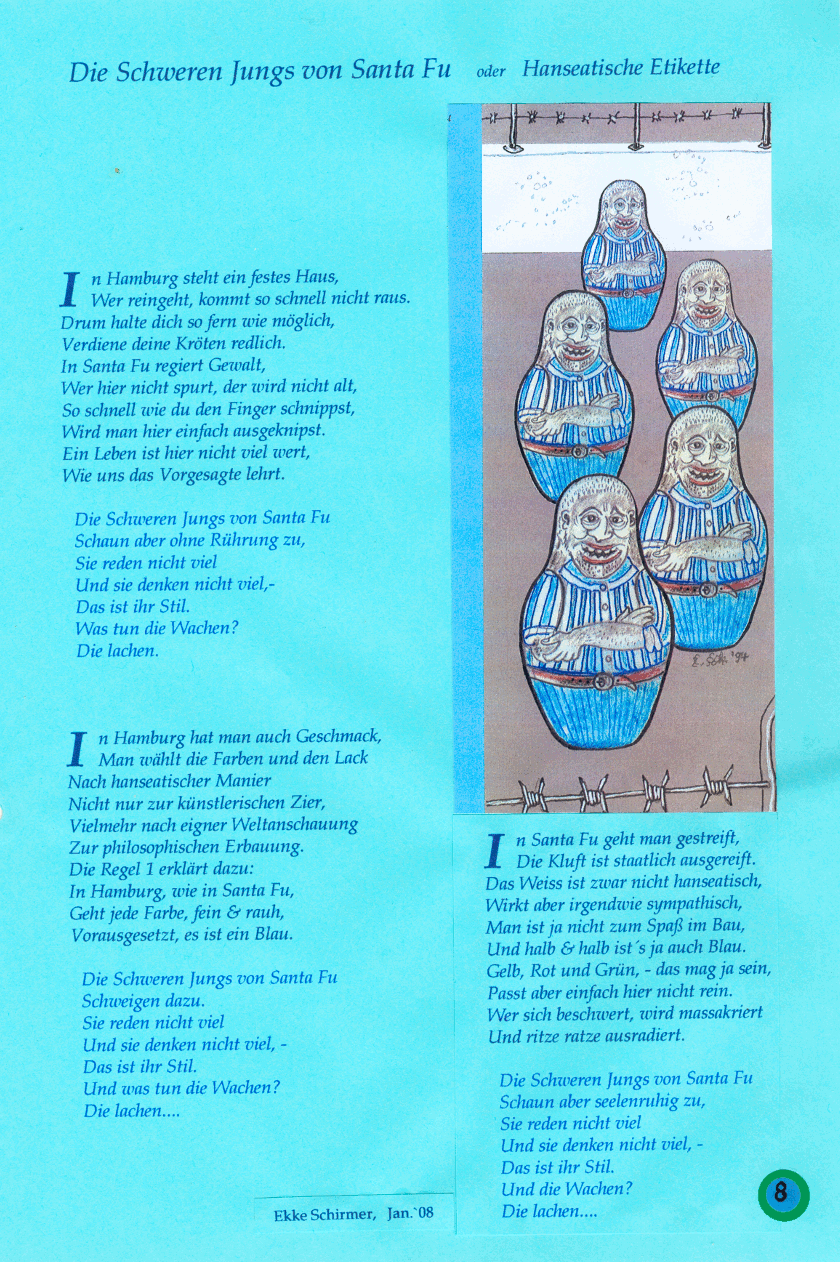 Die Schweren Jungs von Santa Fu oder Hanseatische Etikette
In Hamburg steht ein festes Haus,
Wer reingeht, kommt so schnell nicht raus.
Drum halte dich so fern wie möglich,
Verdiene deine Kröten redlich.
In Santa Fu regiert Gewalt,
Wer hier nicht spurt, der wird nicht alt,
So schnell wie du den Finger schnippst,
Wird man hier einfach ausgeknipst.
Ein Leben ist hier nicht viel wert,
Wie uns das Vorgesagte lehrt.
Die Schweren Jungs von Santa Fu
Schaun aber ohne Rührung zu,
Sie reden nicht viel
Und sie denken nicht viel,-
Das ist ihr Stil.
Was tun die Wachen?
Die lachen.
In Hamburg hat man auch Geschmack,
Man wählt die Farben und den Lack
Nach hanseatischer Manier
Nicht nur zur künstlerischen Zier,
Vielmehr nach eigner Weltanschauung
Zur philosophischen Erbauung.
Die Regel 1 erklärt dazu:
In Hamburg, wie in Santa Fu,
Geht jede Farbe, fein & rauh,
Vorausgesetzt, es ist ein Blau.
Die Schweren Jungs von Santa Fu
Schweigen dazu.
Sie reden nicht viel
Und sie denken nicht viel, -
Das ist ihr Stil.
Und was tun die Wachen?
Die lachen....
In Santa Fu geht man gestreift,
Die Kluft ist staatlich ausgereift.
Das Weiss ist zwar nicht hanseatisch,
Wirkt aber irgendwie sympathisch,
Man ist ja nicht zum Spaß im Bau,
Und halb & halb ist´s ja auch Blau.
Gelb, Rot und Grün, - das mag ja sein,
Passt aber einfach hier nicht rein.
Wer sich beschwert, wird massakriert
Und ritze ratze ausradiert.
Die Schweren Jungs von Santa Fu
Schaun aber seelenruhig zu,
Sie reden nicht viel
Und sie denken nicht viel, -
Das ist ihr Stil.
Und die Wachen?
Die lachen....
Ekke Schirmer, Jan.`08
8
'94